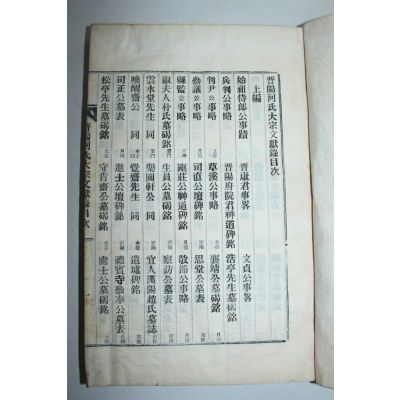 晉陽河氏大宗文獻錄目次
上編
始祖侍郞公事蹟 晉康君事畧 文貞公事畧
兵判公事略 晉陽府院君神道碑銘 浩亭先生墓碣銘
判尹公事略 草溪公事略 襄靖公墓碣銘
叅議公事略 司直公壇碑銘 思堂公墓表
縣監公事略 剛莊公神道碑銘 敬節公事略
淑夫人朴氏墓碣銘 生員公墓碣銘 察訪公墓表
雲水堂先生 同 樂圃軒公 同 宜人漢陽趙氏墓誌
喚醒齋公 同 覺齋先生 同 遺墟碑銘
司正公墓表 進士公壇碑銘 禮賓寺叅奉公墓表
松亭先生墓碣銘 守肯齋公墓碣銘 進士公墓碣銘
晉陽河氏大宗文獻錄目次